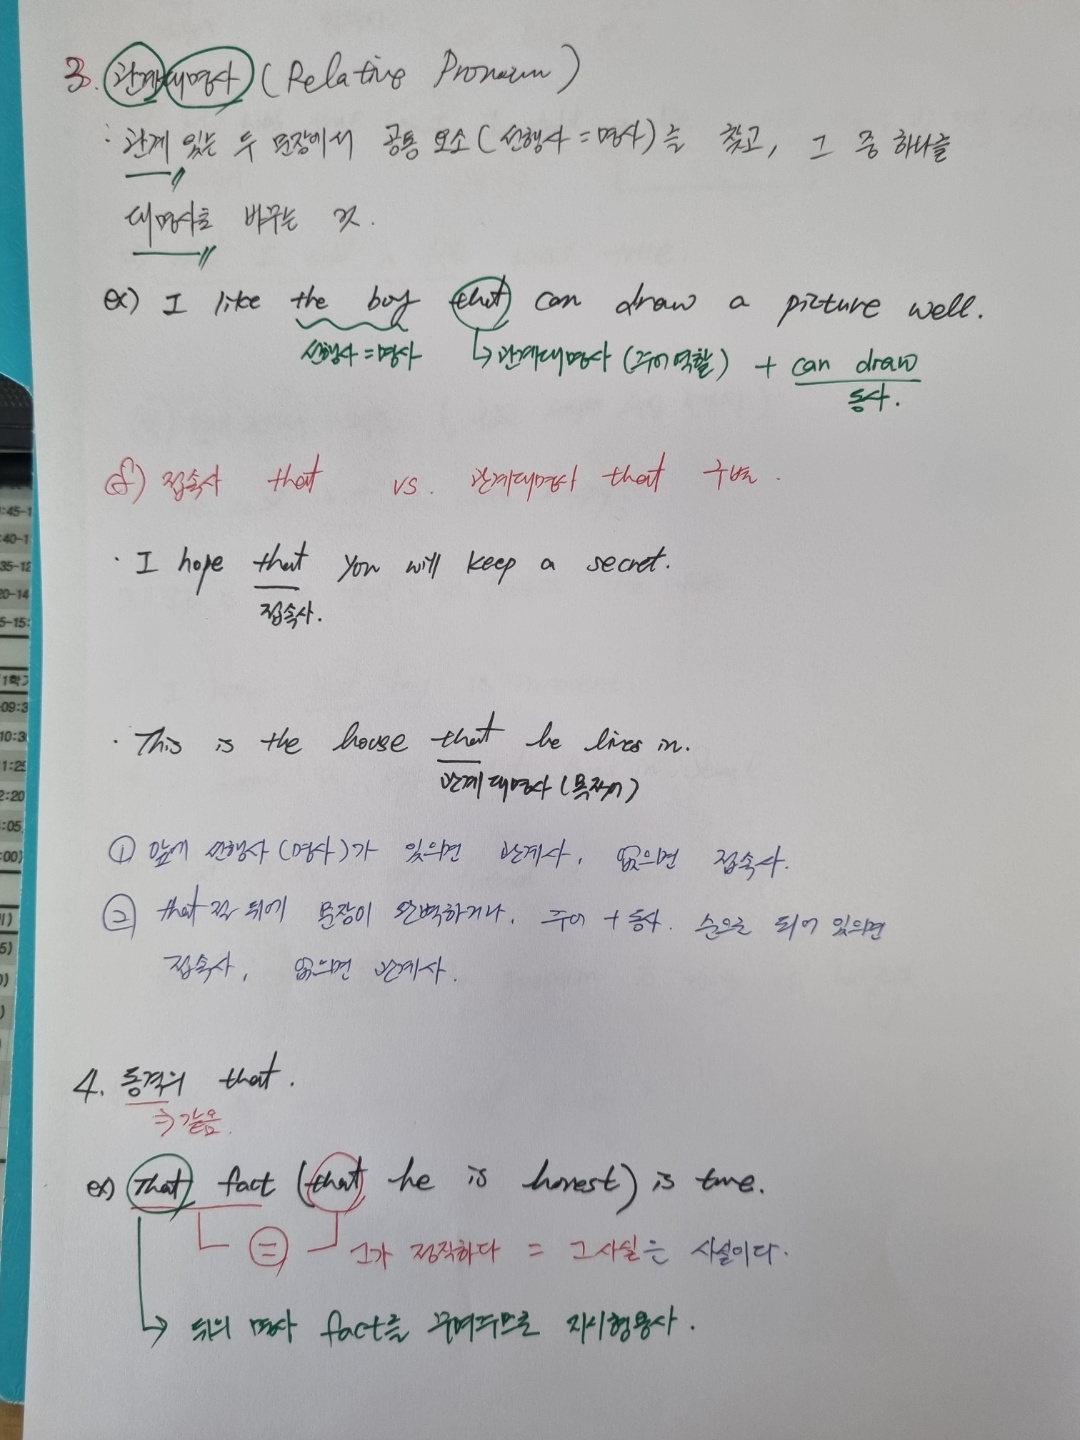 3. 관계대명사 (Relative Pronoun)
: 관계 있는 두 문장에서 공통 요소(선행사=명사)를 찾고, 그 중 하나를
대명사로 바꾸는 것.
ex) I like the boy that can draw a picture well.
선행사=명사 ↳관계대명사 (주어역할) + can draw
동사.
cf) 접속사 that vs. 관계대명사 that 구별.
· I hope that you will keep a secret.
접속사.
· This is the house that he lives in.
관계대명사 (목적어)
① 앞에 선행사(명사)가 있으면 관계사, 없으면 접속사.
② that절 뒤에 문장이 완벽하거나, 주어 + 동사. 순으로 되어 있으면
접속사, 없으면 관계사.
4. 동격의 that.
⇒같음.
ex) That fact (that he is honest) is true.
= 그가 정직하다 = 그 사실은 사실이다.
↳ 뒤의 명사 fact를 꾸며주므로 지시형용사.
:45-1
:40-1
35-12
20-14
5-15:
1학기
09:3
10:3
1:25
2:20
:05
:00)
5)